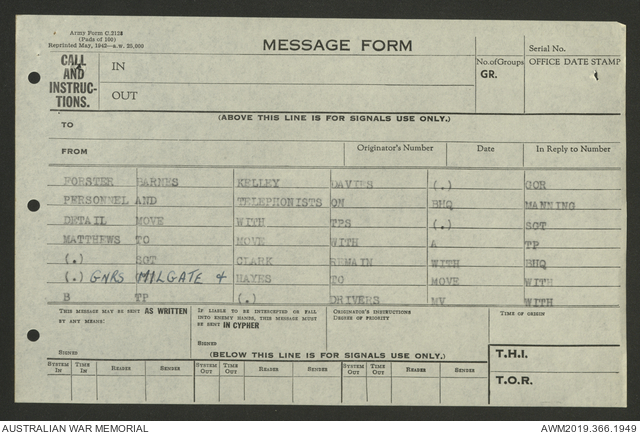 Army Form C.2128
(Pads of 100)
Reprinted May, 1943—a.w. 25,000
MESSAGE FORM
Serial No.
CALL AND INSTRUC-TIONS.
IN
OUT
No. of Groups
GR.
OFFICE DATE STAMP
(ABOVE THIS LINE IS FOR SIGNALS USE ONLY.)
TO
FROM
Originator's Number
Date
In Reply to Number
FORSTER BARNES KELLEY DAVIES (.) COR
PERSONNEL AND TELEPHONISTS ON BHQ MANNING
DETAIL MOVE WITH TPS (.) SGT
MATTHEWS TO MOVE WITH A TP
(.) SGT CLARK REMAIN WITH BHQ
(.) GNRS MILGATE & HAYES TO MOVE WITH
B TP (.) DRIVERS MV WITH
THIS MESSAGE MAY BE SENT AS WRITTEN
BY ANY MEANS.
SIGNED
IF LIABLE TO BE INTERCEPTED OR FALL
INTO ENEMY HANDS, THIS MESSAGE MUST
BE SENT IN CYPHER
SIGNED
ORIGINATOR'S INSTRUCTIONS
DEGREE OF PRIORITY
TIME OF ORIGIN
(BELOW THIS LINE IS FOR SIGNALS USE ONLY.)
T.H.I.
T.O.R.
SYSTEM IN
TIME IN
READER
SENDER
SYSTEM OUT
TIME OUT
READER
SENDER
SYSTEM OUT
TIME OUT
READER
SENDER
AUSTRALIAN WAR MEMORIAL
AWM2019.366.1949